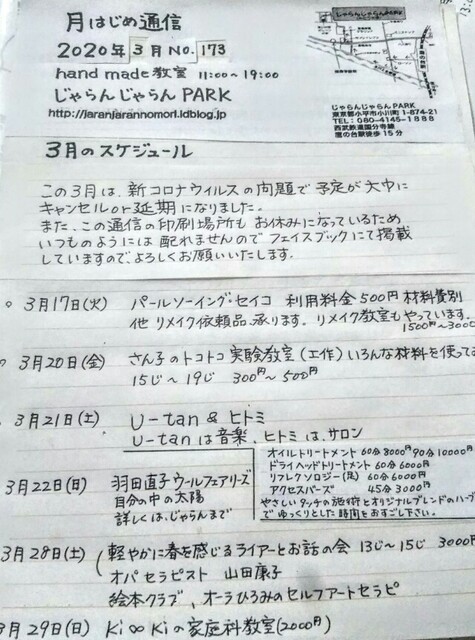 月はじめ通信
2020年3月No.173
hand made教室 11:00~19:00
じゃらんじゃらんPARK
http://jaranjarannomori.idblog.jp
じゃらんじゃらんPARK
じゃらんじゃらんPARK
東京都小平市小川町1-874-21
TEL:080-4145-1888
西武鉄道国分寺線
鷹の台駅徒歩15分
3月のスケジュール
この3月は、新コロナウイルスの問題で予定が大巾に
キャンセルor延期になりました。
また、この通信の印刷場所もお休みになっているため
いつものようには配れませんのでフェイスブックにて掲載
していますので、よろしくお願いいたします。
3月17日(火) パールソーイング・セイコ 利用料金500円 材料費別
他 リメイク依頼品承ります。リメイク教室もやっています。
3月20日(金) さん子のトコトコ実験教室(工作)いろんな材料を使って
15じ~19じ 300円~500円
3月21日(土) U-tan & ヒトミ
U-tanは音楽、ヒトミは、サロン
オイルトリートメント 60分8000円 90分10000円
ドライヘッドトリートメント 60分6000円
リフレクソロジー(足) 60分6000円
アクセスバーズ 45分3000円
やさしいタッチの施術とオリジナルブレンドのハーブ
でゆっくりとした時間をおすごし下さい。
3月22日(日) 羽田直子ウールフェアリーズ
自分の中の太陽
詳しくは、じゃらんまで
3月28日(土) 軽やかに春を感じるライアーとお話の会 13じ~15じ 3000円
オパセラピスト 山田康子
絵本クラブ、オーラひろみのセルフアートセラピ
3月29日(日) Ki∞Kiの家庭科教室(2000円)